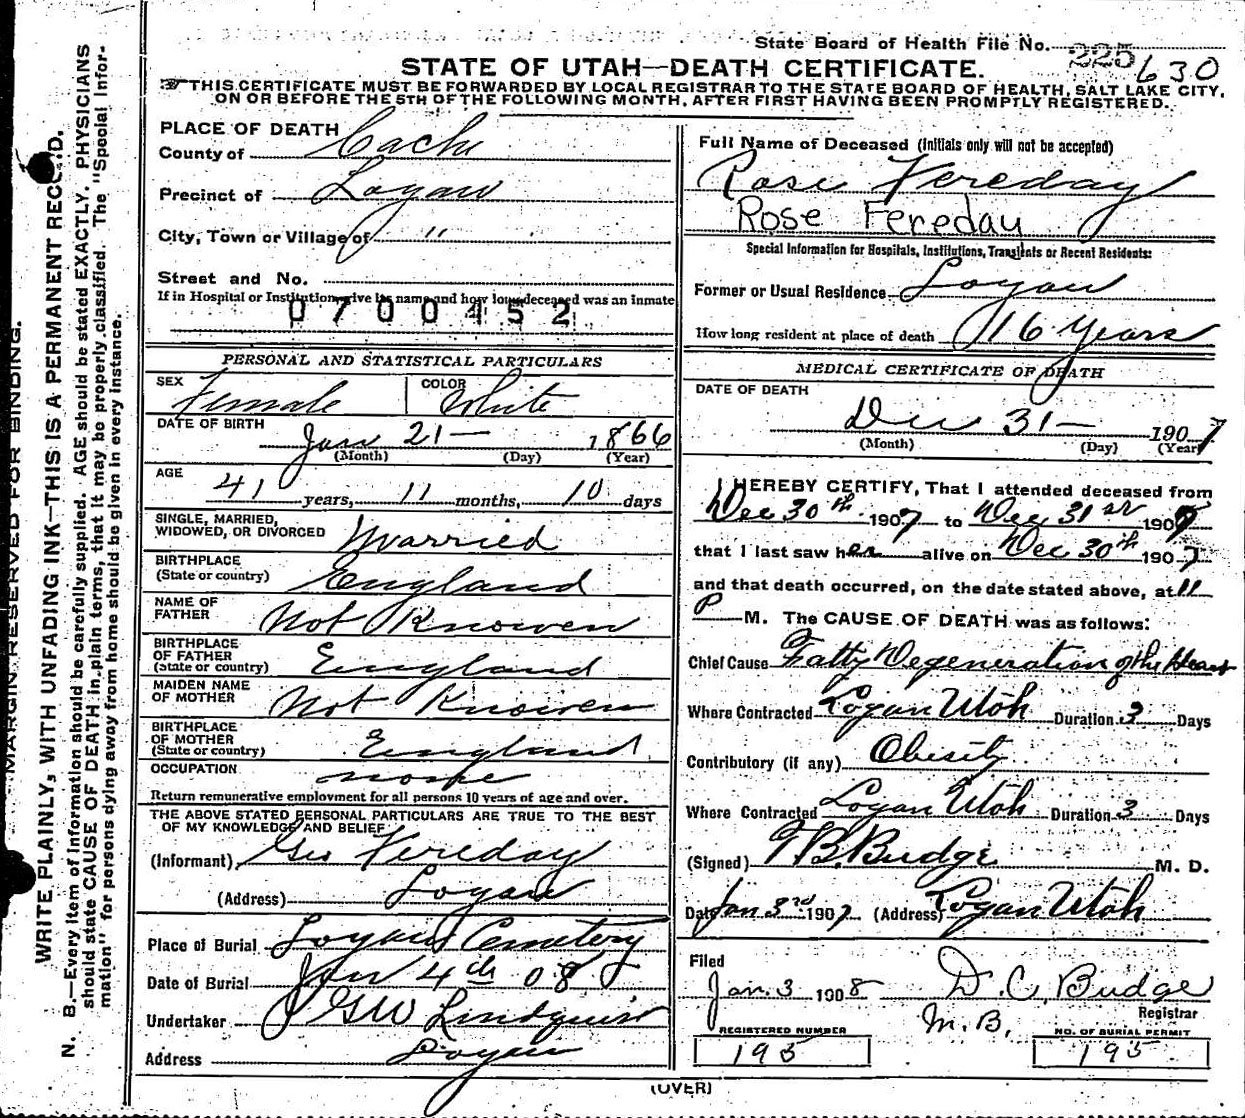 State Board of Health File No. 225 630
STATE OF UTAH—DEATH CERTIFICATE.
THIS CERTIFICATE MUST BE FORWARDED BY LOCAL REGISTRAR TO THE STATE BOARD OF HEALTH, SALT LAKE CITY,
ON OR BEFORE THE 5TH OF THE FOLLOWING MONTH, AFTER FIRST HAVING BEEN PROMPTLY REGISTERED.
MARGIN RESERVED FOR BINDING.
WRITE PLAINLY, WITH UNFADING INK—THIS IS A PERMANENT RECORD.
N. B.—Every item of information should be carefully supplied. AGE should be stated EXACTLY. PHYSICIANS
should state CAUSE OF DEATH in plain terms, that it may be properly classified. The "Special Infor-
mation" for persons dying away from home should be given in every instance.
PLACE OF DEATH
County of Cache
Precinct of Logan
City, Town or Village of " "
Street and No.
If in Hospital or Institution give its name and how long deceased was an inmate
0700452
PERSONAL AND STATISTICAL PARTICULARS
SEX Female COLOR White
DATE OF BIRTH
Jan 21— 1866
(Month) (Day) (Year)
AGE
41 years, 11 months, 10 days
SINGLE, MARRIED,
WIDOWED, OR DIVORCED Married
BIRTHPLACE
(State or country) England
NAME OF
FATHER Not Knowen
BIRTHPLACE
OF FATHER
(State or country) England
MAIDEN NAME
OF MOTHER Not Knowen
BIRTHPLACE
OF MOTHER
(State or country) England
OCCUPATION none
Return remunerative employment for all persons 10 years of age and over.
THE ABOVE STATED PERSONAL PARTICULARS ARE TRUE TO THE BEST
OF MY KNOWLEDGE AND BELIEF
(Informant) Geo Fereday
(Address) Logan
Place of Burial Logan Cemetery
Date of Burial Jan 4th 08
Undertaker GW Lindquist
Address Logan
Full Name of Deceased (Initials only will not be accepted)
Rose Fereday
Rose Fereday
Special Information for Hospitals, Institutions, Transients or Recent Residents:
Former or Usual Residence Logan
How long resident at place of death 16 Years
MEDICAL CERTIFICATE OF DEATH
DATE OF DEATH
Dec 31— 1907
(Month) (Day) (Year)
I HEREBY CERTIFY, That I attended deceased from
Dec 30th 1907 to Dec 31st 1907
that I last saw her alive on Dec 30th 1907
and that death occurred, on the date stated above, at 11
P M. The CAUSE OF DEATH was as follows:
Chief Cause Fatty Degeneration of the Heart
Where Contracted Logan Utah Duration 3 Days
Contributory (if any) Obesity
Where Contracted Logan Utah Duration 3 Days
(Signed) T.B. Budge M. D.
Date Jan 3rd 1907 (Address) Logan Utah
Filed
Jan. 3 1908 D. C. Budge
Registrar
M.B.
REGISTERED NUMBER NO. OF BURIAL PERMIT
195 195
(OVER)